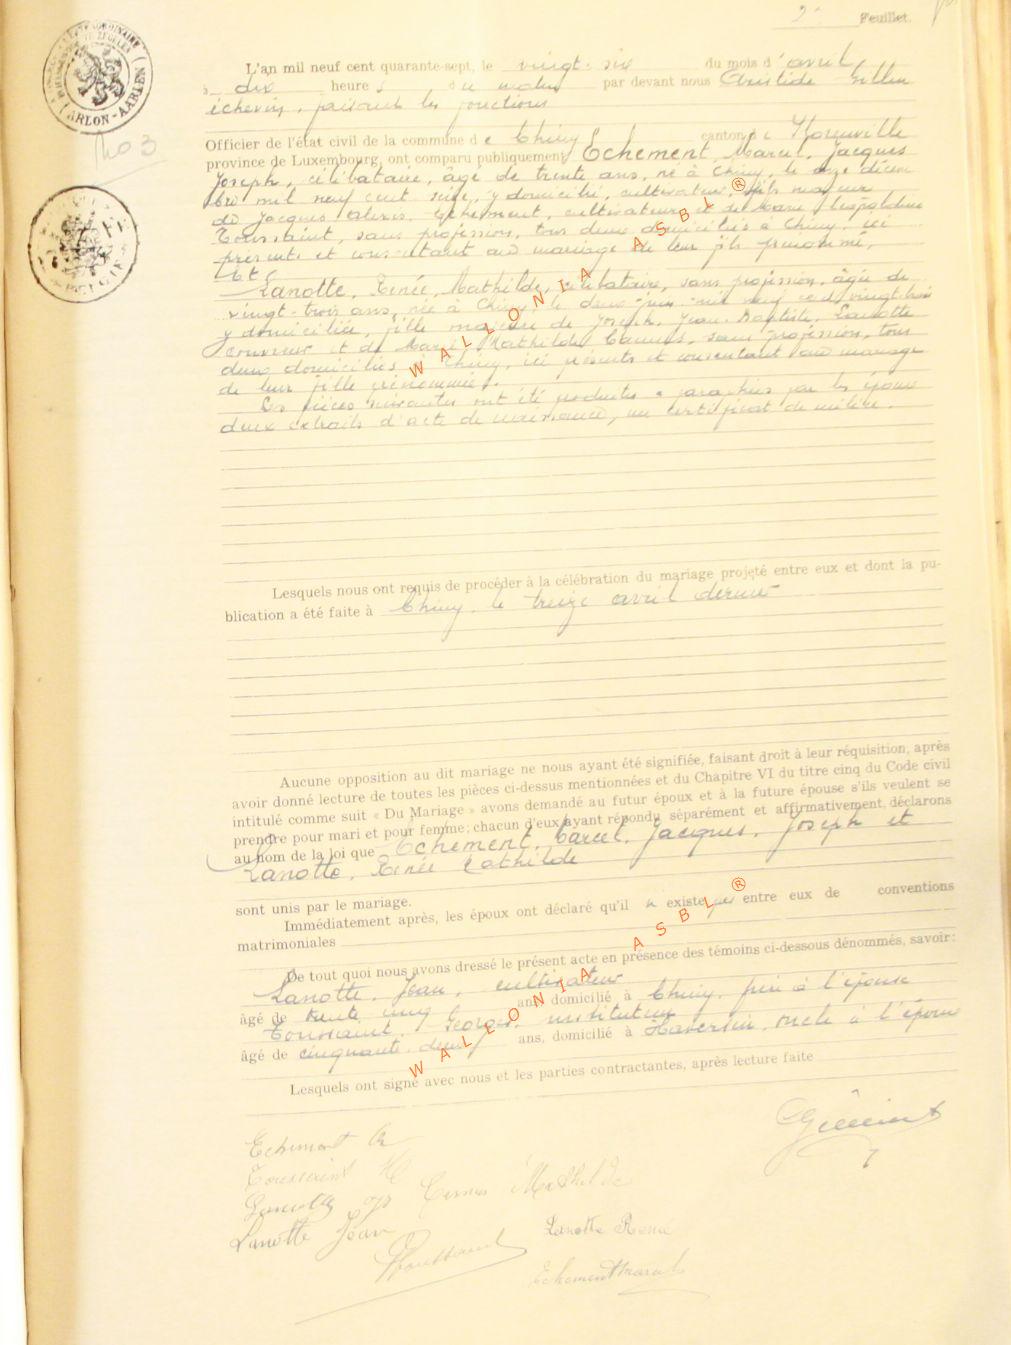 2e Feuillet.
ARLON - AARLEN
No 3
L'an mil neuf cent quarante-sept, le vingt-six du mois d'avril
à dix heures du matin par devant nous Aristide
échevin, faisant les fonctions
Officier de l'état civil de la commune de Chiny canton de Florenville
province de Luxembourg, ont comparu publiquement Echement, Marcel, Jacques
Joseph, célibataire, âgé de trente ans, né à Chiny, le onze décem
bre mil neuf cent seize, y domicilié, cultivateur, fils majeur
de Jacques Alexis Echement, cultivateur et de Marie Léopoldine
Toussaint, sans profession, tous deux domiciliés à Chiny, ici
présents et consentant au mariage de leur fils prénommé,
Et
Lanotte, Renée, Mathilde, célibataire, sans profession, âgée de
vingt-trois ans, née à Chiny, le deux juin mil neuf cent vingt-trois
y domiciliée, fille majeure de Joseph, Jean-Baptiste, Lanotte
couvreur et de Marie Mathilde sans profession, tous
deux domiciliés à Chiny, ici présents et consentant au mariage
de leur fille prénommée.
Les pièces suivantes ont été produites et paraphées par les époux
deux extraits d'acte de naissance, un certificat de milice.
Lesquels nous ont requis de procéder à la célébration du mariage projeté entre eux et dont la pu-
blication a été faite à Chiny, le treize avril dernier
Aucune opposition au dit mariage ne nous ayant été signifiée, faisant droit à leur réquisition, après
avoir donné lecture de toutes les pièces ci-dessus mentionnées et du Chapitre VI du titre cinq du Code civil
intitulé comme suit « Du Mariage » avons demandé au futur époux et à la future épouse s'ils veulent se
prendre pour mari et pour femme; chacun d'eux ayant répondu séparément et affirmativement, déclarons
au nom de la loi que Echement, Marcel, Jacques, Joseph et
Lanotte, Renée Mathilde
sont unis par le mariage.
Immédiatement après, les époux ont déclaré qu'il n'existe pas entre eux de conventions
matrimoniales
De tout quoi nous avons dressé le présent acte en présence des témoins ci-dessous dénommés, savoir:
Lanotte, Jean, cultivateur
âgé de trente cinq ans, domicilié à Chiny, frère à l'épouse
Toussaint, Georges, instituteur
âgé de cinquante deux ans, domicilié à Haversin, oncle à l'époux
Lesquels ont signé avec nous et les parties contractantes, après lecture faite
Echement A
Toussaint M
Lanotte Mathilde
Lanotte Jean
Lanotte Renée
Toussaint
Echement Marcel
WALLONIA ASBL ®
WALLONIA ASBL ®